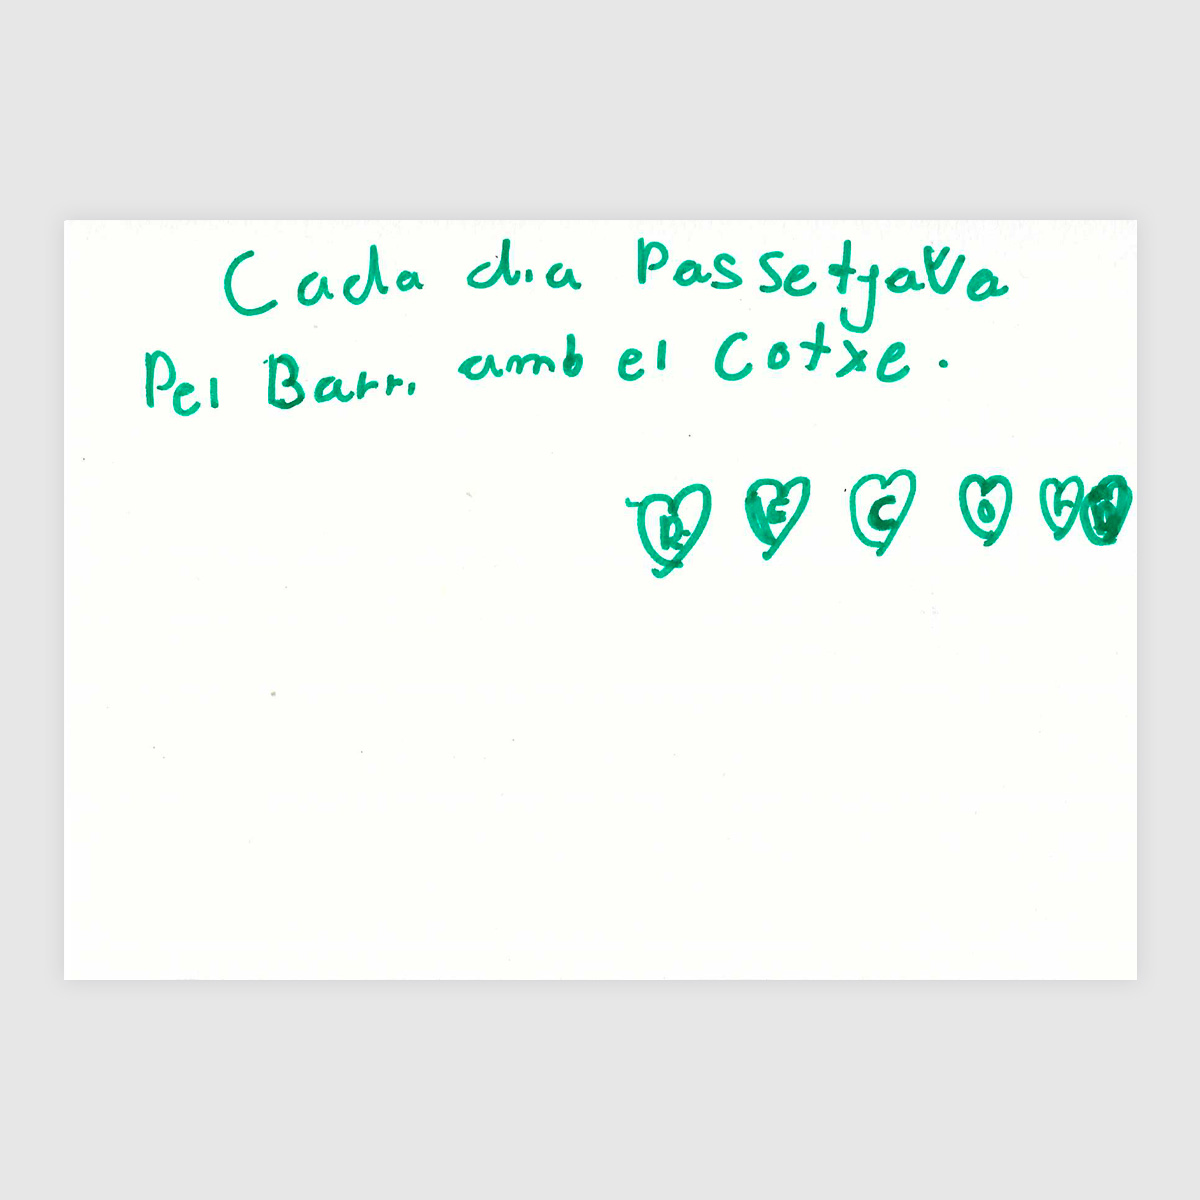 Cada dia Passetjava
Pel Barri amb el Cotxe.
R E C O R D